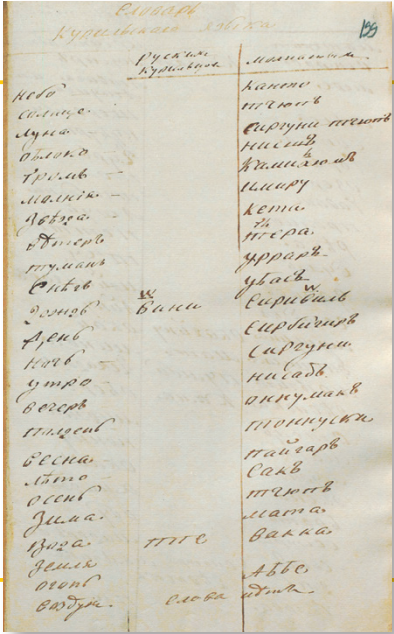 Словарь
Курильского языка
199
Руских Курильцов мохнатым
небо канто
солнце тчюпъ
луна сиргуни тчюпъ
облоко нисишъ
громъ
молнія имиру
звѣзда кета
вѣтеръ тера
туманъ урраръ
снѣгъ убасъ
бини сиривиль
день сирбигиръ
ночь сиргуни
утро нисадъ
вечеръ оннуманъ
полдень тоннуски
весна пайгаръ
лѣто сакъ
осень тчюпъ
зима мата
вода вакка
земля
огонь Аббе
воздухъ слова нѣтъ